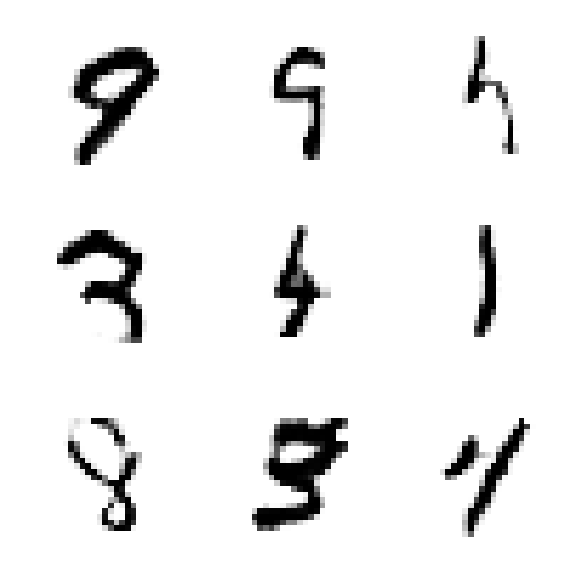 9 9 4
3 4 1
8 5 4